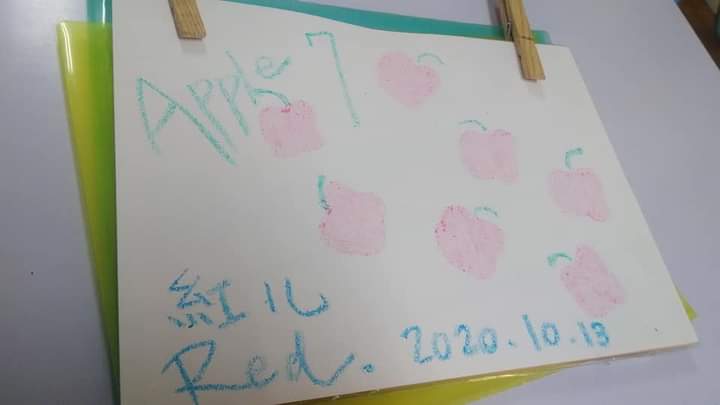 Apple 7
紅儿
Red. 2020.10.13